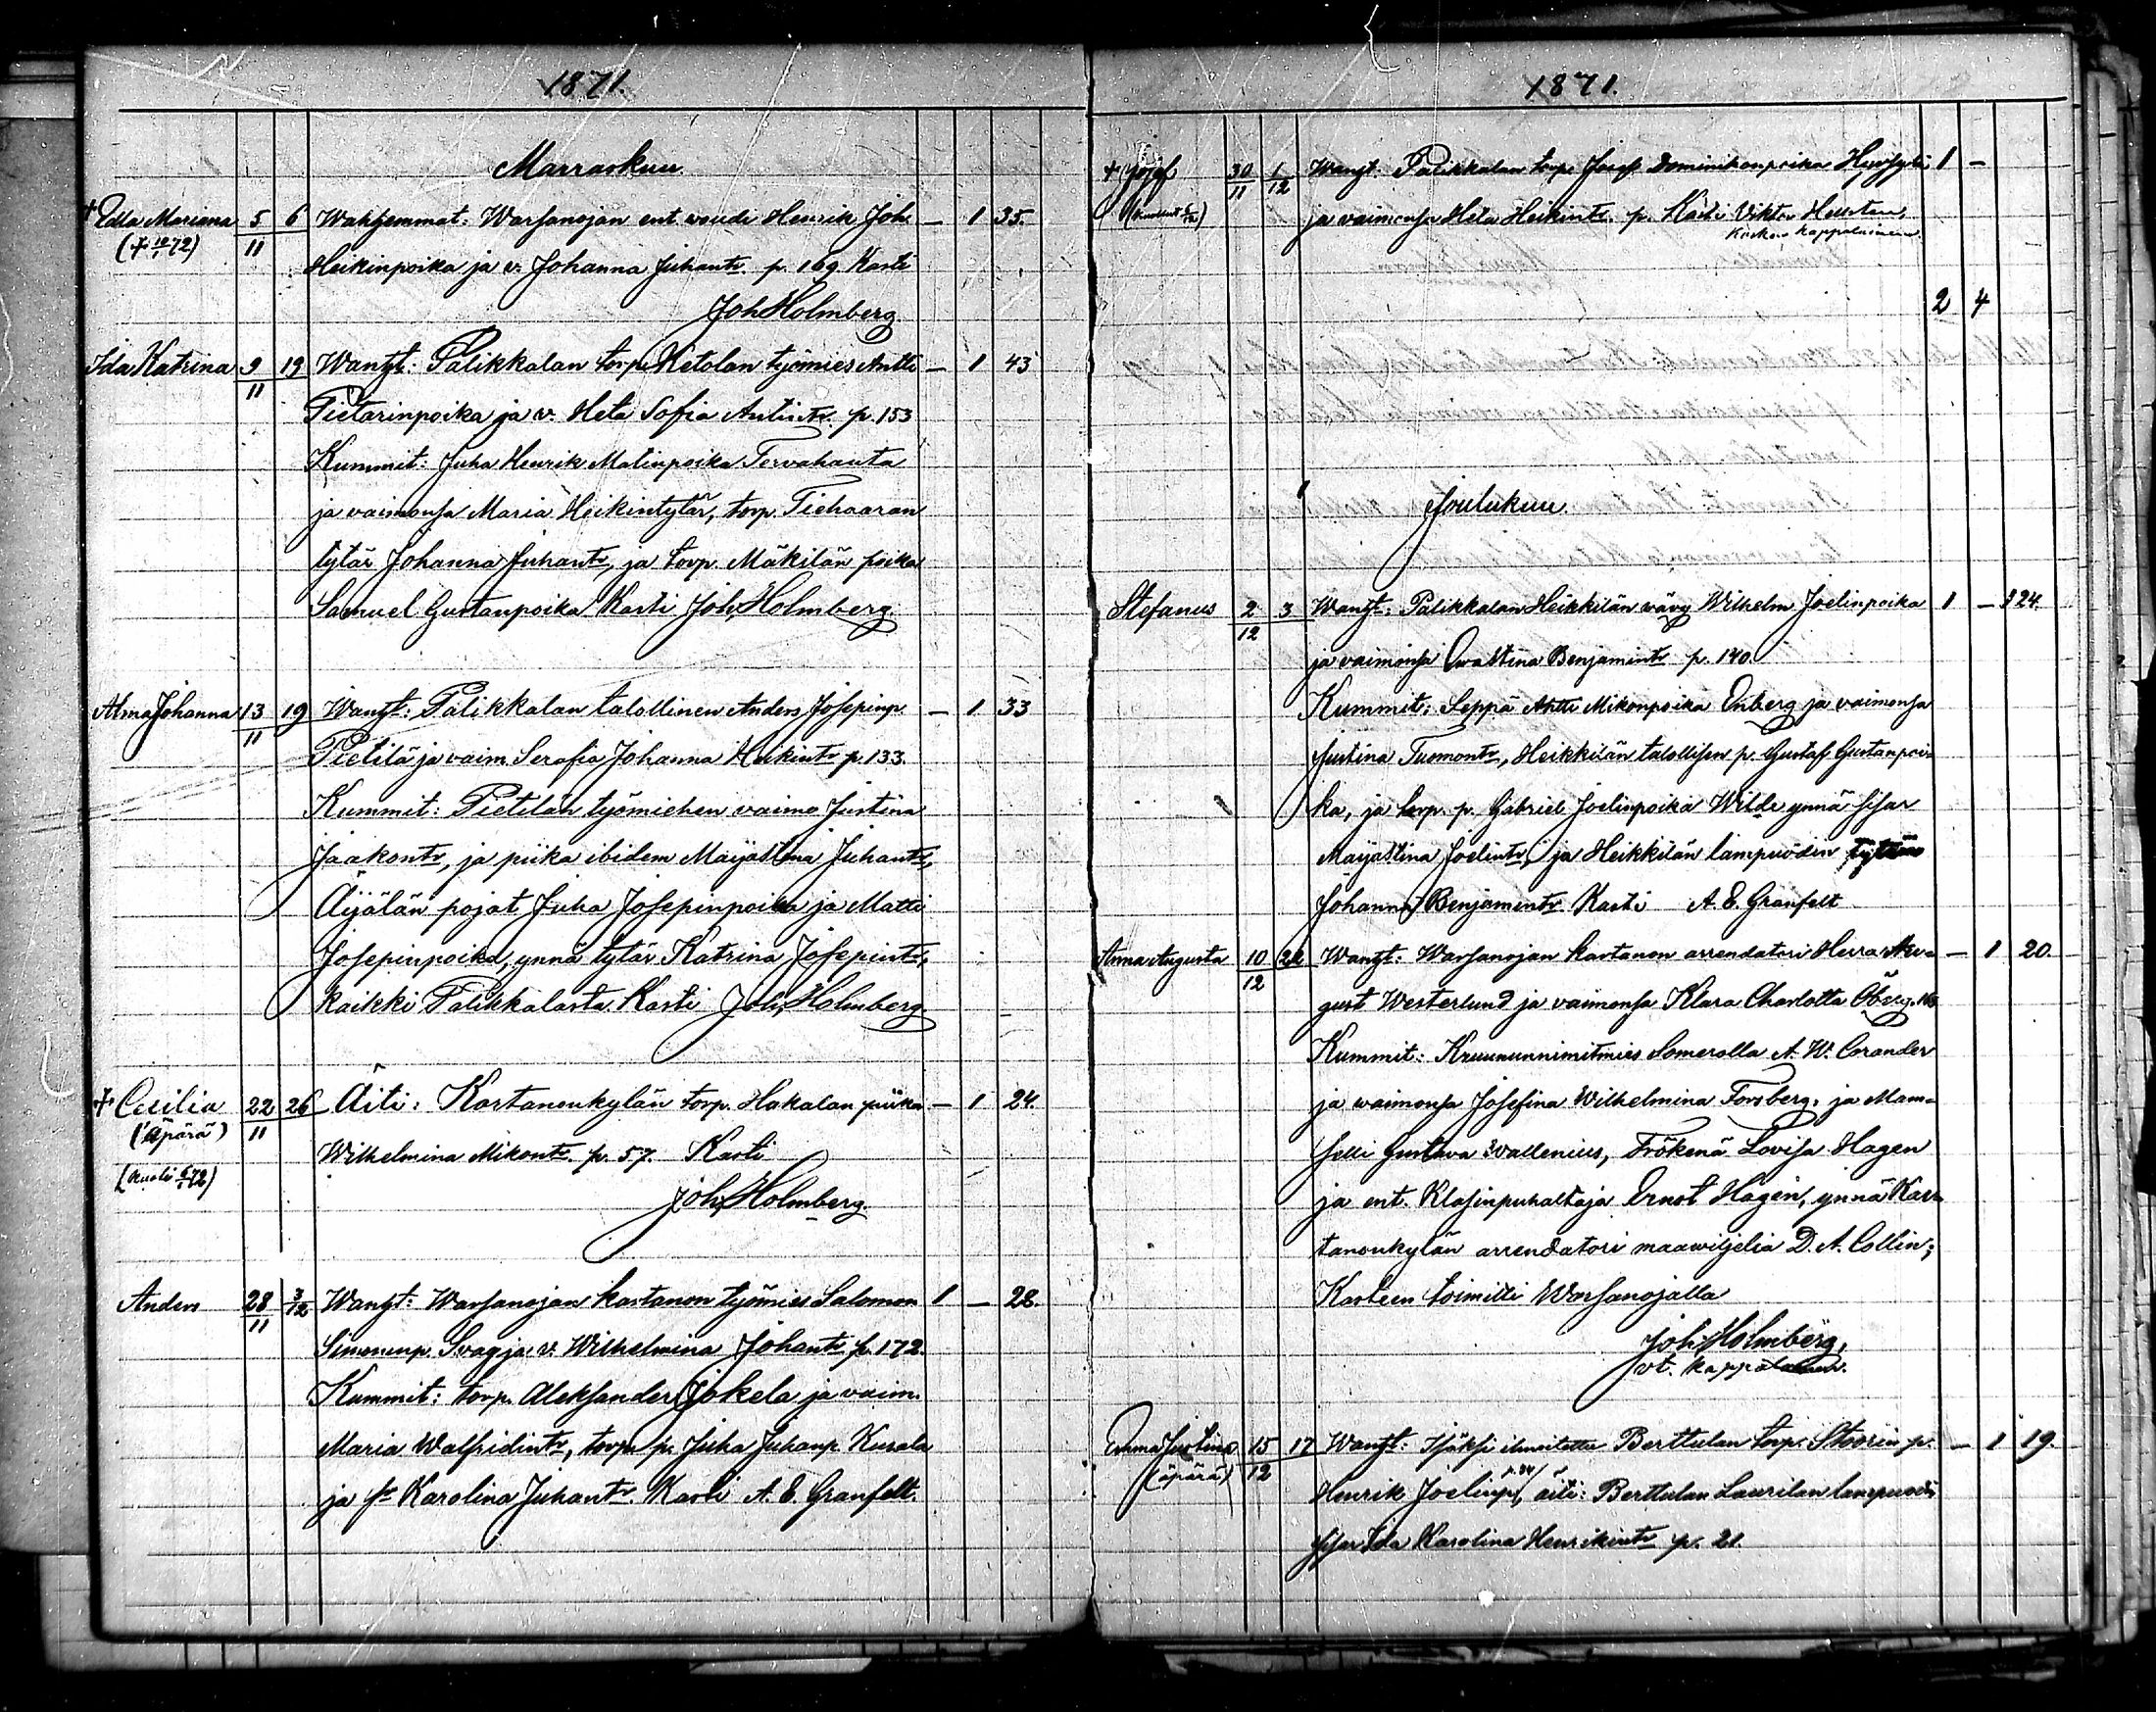 1871.
Marraskuu
† Edla Mariana 5/11 6 Wahhemmat: Warsanojan ent. woudi Henrik Joh. — 1 35.
(† 10/1 72) Heikinpoika ja v. Johanna Juhantr. p. 169 Kasti
Joh. Holmberg
Ida Katrina 9/11 19 Wanht: Palikkalan torp. Ketolan työmies Antti — 1 43
Pietarinpoika ja v. Heta Sofia Antintr. p. 153
Kummit: Juha Henrik Matinpoika Torvahauta
ja vaimonsa Maria Heikintytär, torp. Tiehaaran
tytär Johanna Juhantr, ja torp. Mäkilän poika
Samuel Gustanpoika Kasti Joh. Holmberg.
Alma Johanna 13/11 19 Wanht: Palikkalan talollinen Anders Josepinp. — 1 33
Pietilä ja vaim. Serafia Johanna Heikintr p. 133.
Kummit: Pietilän työmiehen vaimo Justina
Jaakontr, ja piika ibidem Maijastina Juhantr,
Äijälän pojat Juha Josepinpoika ja Matti
Josepinpoika, ynnä tytär Katrina Josepintr,
kaikki Palikkalasta. Kasti Joh. Holmberg.
† Cecilia 22/11 26 Äiti: Kartanonkylän torp. Hakalan piika — 1 24.
(äpärä) Wilhelmina Mikontr. p. 57. Kasti
(kuoli 6/1 72) Joh. Holmberg.
Anders 28/11 3/12 Wanht: Warsanojan kartanon työmies Salomon 1 — 28.
Simonenp. Svag ja v. Wilhelmina Johantr p. 172.
Kummit: torp. Aleksander Jokela ja vaim.
Maria Walfridintr, torp. p. Juha Juhanp. Kusala
ja Karolina Juhantr. Kasti A. E. Granfelt.
1871.
† Josef 30/11 1/12 Wanht: Palikkalan torp. Josef Dominikonpoika 1 —
ja vaimonsa Heta Heikintr. p. Kasti Viktor Hellsten,
kappalainen.
2 4
Joulukuu
Stefanus 2/12 3 Wanht: Palikkalan Heikkilän vävy Wilhelm Joelinpoika 1 — 24.
ja vaimonsa Ewastina Benjamintr p. 140
Kummit: Seppä Antti Mikonpoika Enberg ja vaimonsa
Justina Tuomontr, Heikkilän talollisen p. Gustaf Gustanpoi-
ka, ja torp. p. Gabriel Joelinpoika Wilde ynnä sisar
Maijastina Joelintr, ja Heikkilän lampuodin
Johanna Benjamintr. Kasti A. E. Granfelt
Anna Augusta 10/12 22 Wanht: Warsanojan kartanon arrendatori Herra Au- — 1 20.
gust Westerlund ja vaimonsa Klara Charlotta Öberg.
Kummit: Kruununnimitmies Somerolla A. W. Corander
ja waimonsa Josefina Wilhelmina Forsberg, ja Mam-
selli Gustava Wallenius, Frökenä Lovisa Hagen
ja ent. Klasinpuhaltaja Ernst Hagen, ynnä Kar-
tanonkylän arrendatori maawiljeliä D. A. Collin;
Kasteen toimitti Warsanojalla
Joh. Holmberg,
vt. kappalainen.
Emma Justina 15/12 17 Wanht: Isäksi ilmoitettu Berttulan torp. Storin p. — 1 19.
(äpärä) Henrik Joelinp, äiti: Berttulan Laurilan lampuodin
sisar Ida Karolina Henrikintr p. 21.